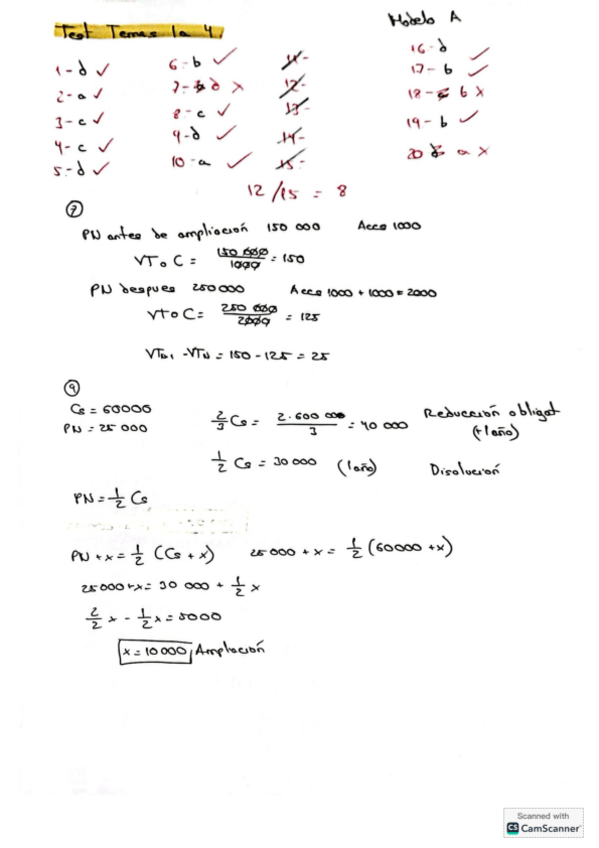 Test Temas 1a 4.
Modelo A
1-d ✓
2-a ✓
3-c ✓
4-c ✓
5-d ✓
6-b ✓
7- d x
8-c ✓
9-d ✓
10-a ✓
11-
12-
13-
14-
15-
16-d ✓
17-b ✓
18- b x
19-b ✓
20 a x
12/15 = 8
7
PN antes de ampliación 150 000 Accs 1000
VToC = 150 000 / 1000 = 150
PN despues 250000 Accs 1000 + 1000 = 2000
VToC = 250 000 / 2000 = 125
- VTN = 150 - 125 = 25
9
Cs = 60000
PN = 25 000
2/3 Cs = 2·600 000 / 3 = 40 000 Reducción obligat
(+1año)
1/2 Cs = 30000 (1año) Disolución
PN = 1/2 Cs
PN + x = 1/2 (Cs + x) 25000 + x = 1/2 (60000 + x)
25000+x = 30 000 + 1/2 x
2/2 x - 1/2 x = 5000
x = 10000, Ampliación
Scanned with
CS CamScanner